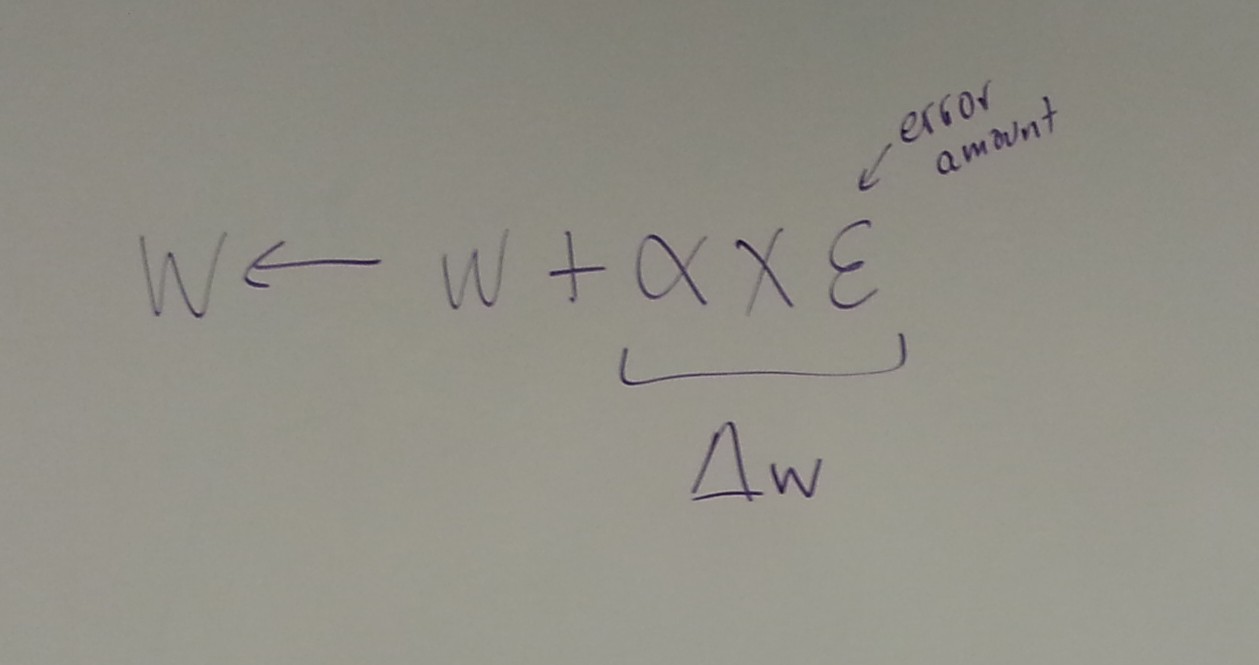 error
amount
W ← W + α X ε
Δw